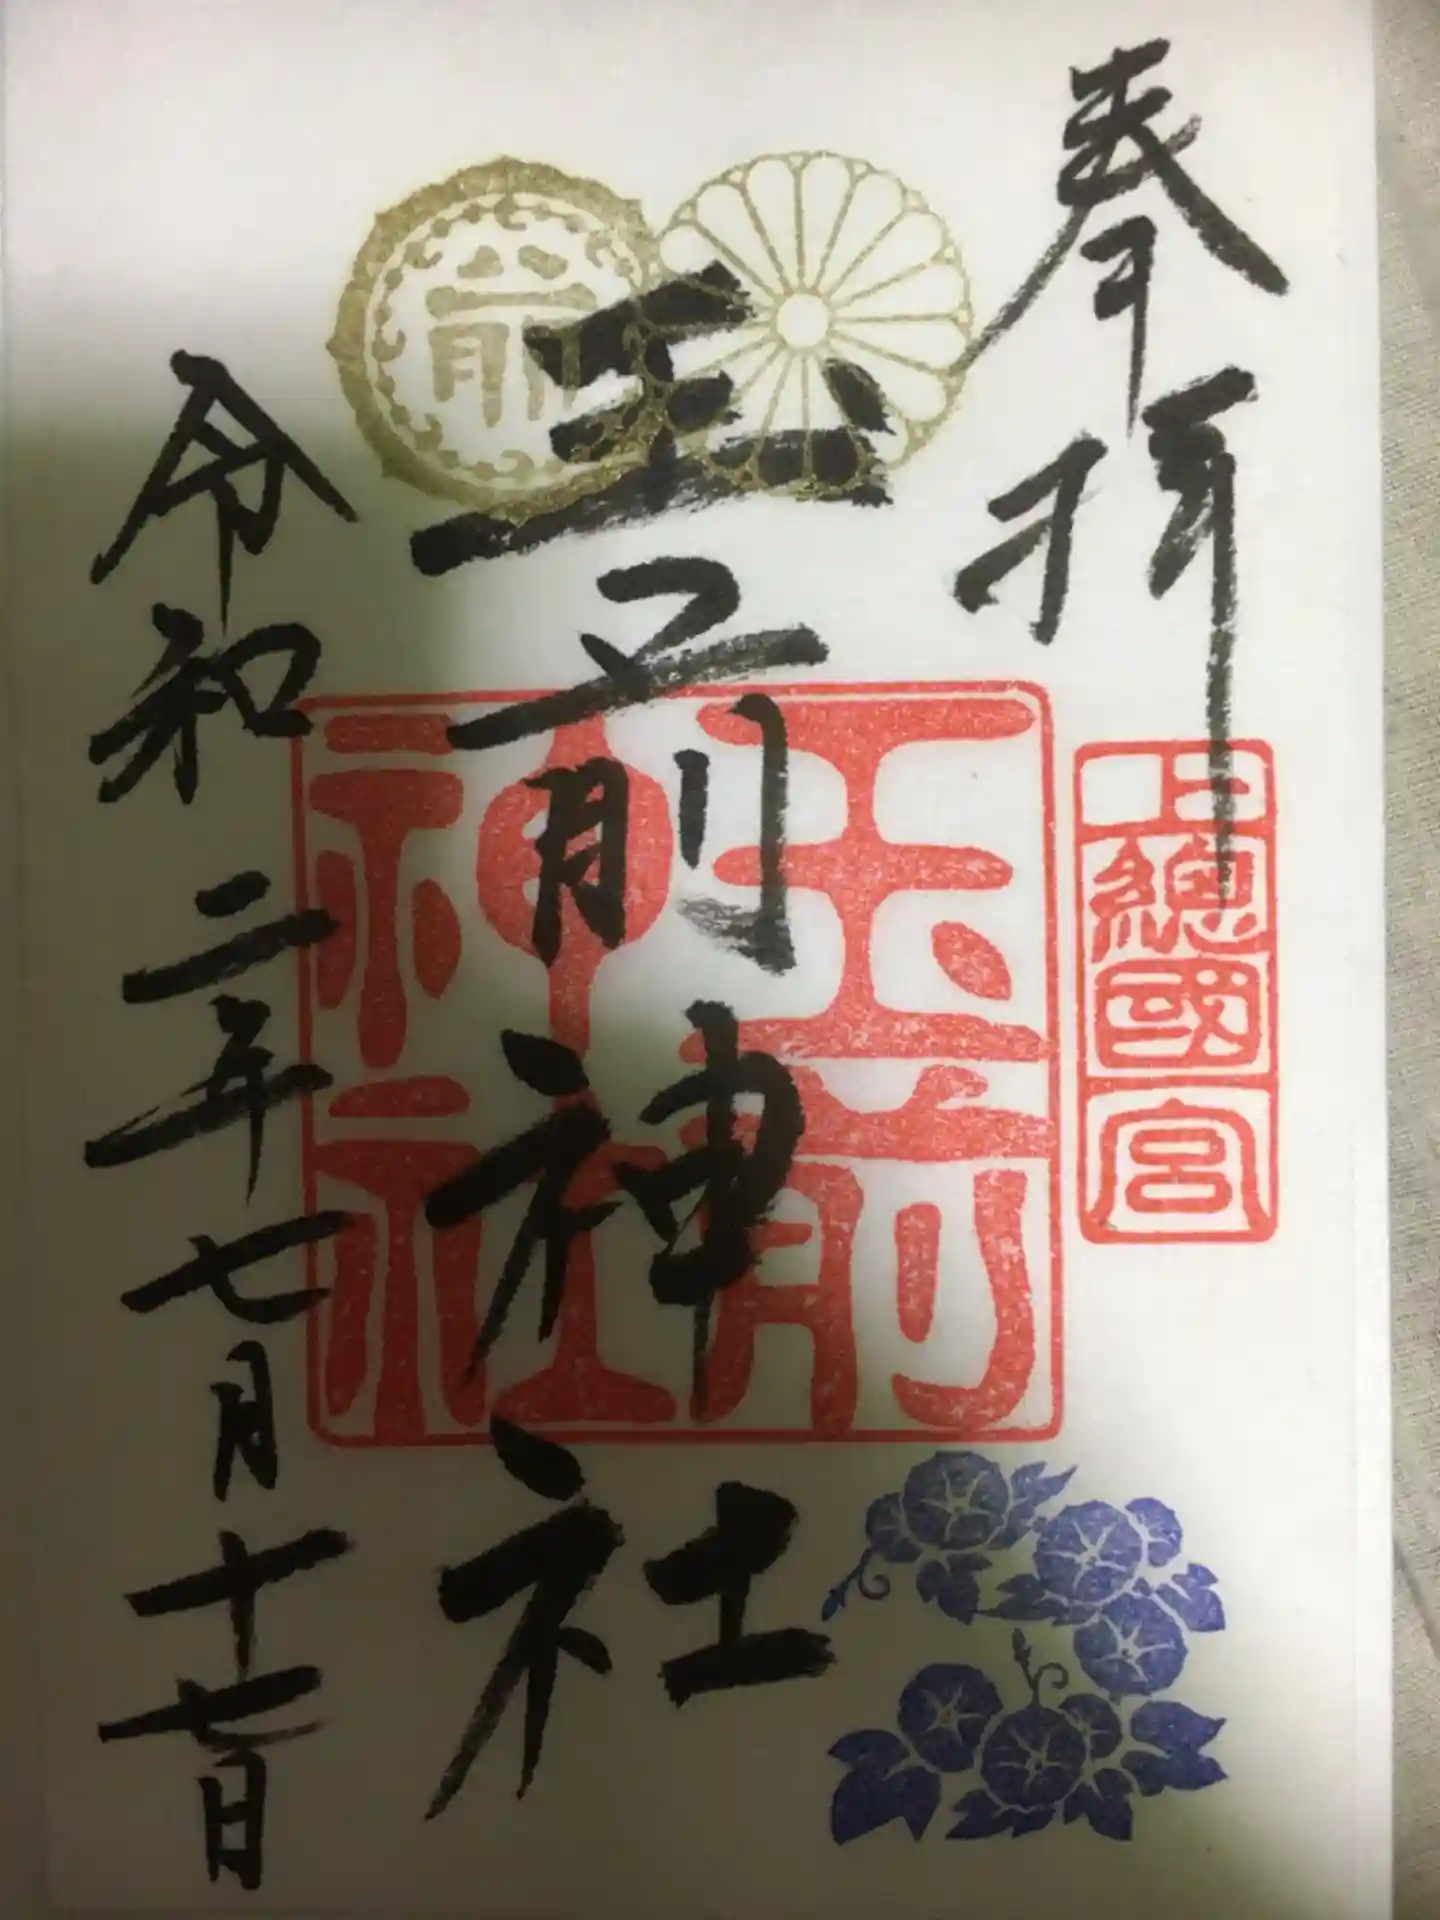 奉拝
上總國一宮
玉前神社
玉前
神社
前
令和二年七月十七日